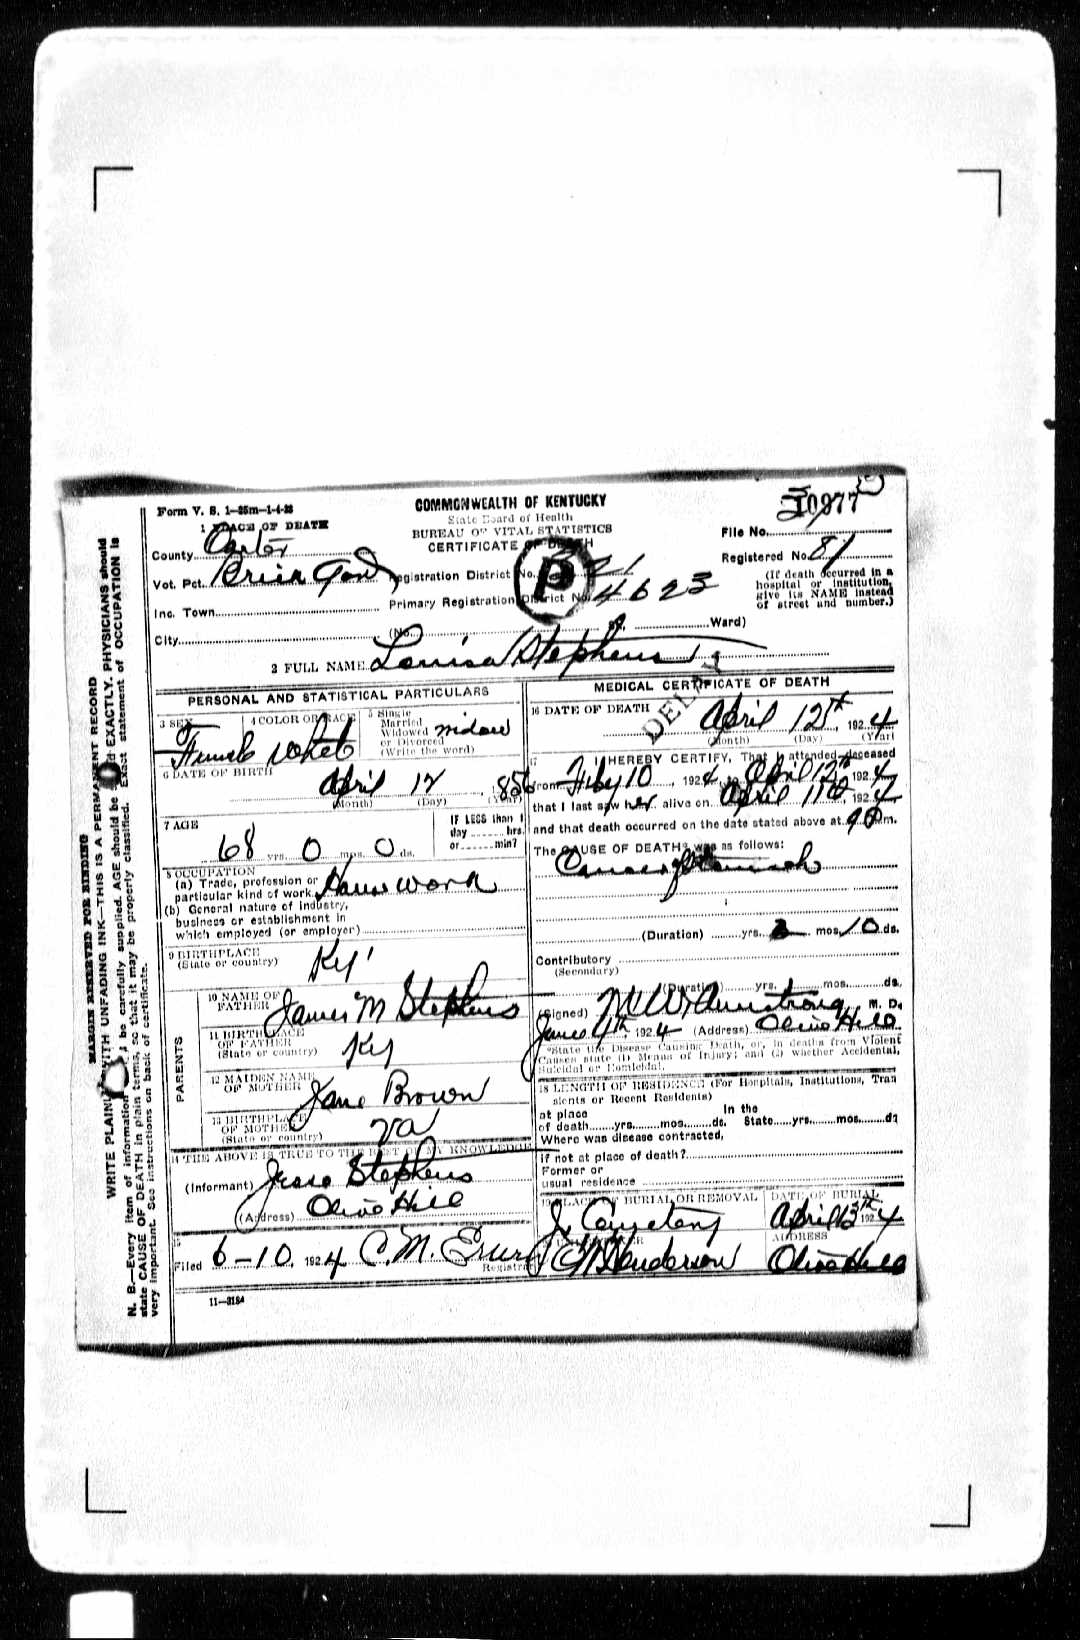 Form V. S. 1—25m—1-4-23
COMMONWEALTH OF KENTUCKY
State Board of Health
BUREAU OF VITAL STATISTICS
CERTIFICATE OF DEATH
1 PLACE OF DEATH
File No. 10977
County Carter
Registered No. 81
Vot. Pct.
Registration District No.
(If death occurred in a hospital or institution, give its NAME instead of street and number.)
Inc. Town
Primary Registration District No. 4623
City (No. St. Ward)
2 FULL NAME Louisa Stephens
PERSONAL AND STATISTICAL PARTICULARS
3 SEX Female
4 COLOR OR RACE White
5 Single Married Widowed or Divorced (Write the word) Widow
6 DATE OF BIRTH
April 12, 1856
(Month) (Day) (Year)
7 AGE
68 yrs. 0 mos. 0 ds.
IF LESS than 1 day hrs. or min?
8 OCCUPATION
(a) Trade, profession or particular kind of work House work
(b) General nature of industry, business or establishment in which employed (or employer)
9 BIRTHPLACE (State or country) Ky
PARENTS
10 NAME OF FATHER James M Stephens
11 BIRTHPLACE OF FATHER (State or country) Ky
12 MAIDEN NAME OF MOTHER Jane Brown
13 BIRTHPLACE OF MOTHER (State or country) Va
14 THE ABOVE IS TRUE TO THE BEST OF MY KNOWLEDGE
(Informant) Jesse Stephens
(Address) Olive Hill
15
Filed 6-10, 1924 C. M.
Registrar
11—3184
MEDICAL CERTIFICATE OF DEATH
16 DATE OF DEATH
DELAY
April 12th, 1924
(Month) (Day) (Year)
17 I HEREBY CERTIFY, That I attended deceased
from Feby 10, 1924, to April 12th 1924
that I last saw her alive on April 11th, 1924
and that death occurred on the date stated above at 9 P m.
The CAUSE OF DEATH* was as follows:
Cancer of Stomach
(Duration) yrs. 2 mos. 10 ds.
Contributory
(Secondary)
(Duration) yrs. mos. ds.
(Signed) Armstrong M. D.
June 4th, 1924 (Address) Olive Hill
*State the Disease Causing Death, or, in deaths from Violent Causes state (1) Means of Injury; and (2) whether Accidental, Suicidal or Homicidal.
18 LENGTH OF RESIDENCE (For Hospitals, Institutions, Transients or Recent Residents)
at place of death yrs. mos. ds. In the State yrs. mos. ds
Where was disease contracted,
if not at place of death?
Former or usual residence
19 PLACE OF BURIAL OR REMOVAL
DATE OF BURIAL
April 13th 1924
20 UNDERTAKER
Henderson
ADDRESS
Olive Hill
MARGIN RESERVED FOR BINDING
WRITE PLAINLY WITH UNFADING INK—THIS IS A PERMANENT RECORD
N. B.—Every item of information should be carefully supplied. AGE should be stated EXACTLY. PHYSICIANS should
state CAUSE OF DEATH in plain terms, so that it may be properly classified. Exact statement of OCCUPATION is
very important. See instructions on back of certificate.